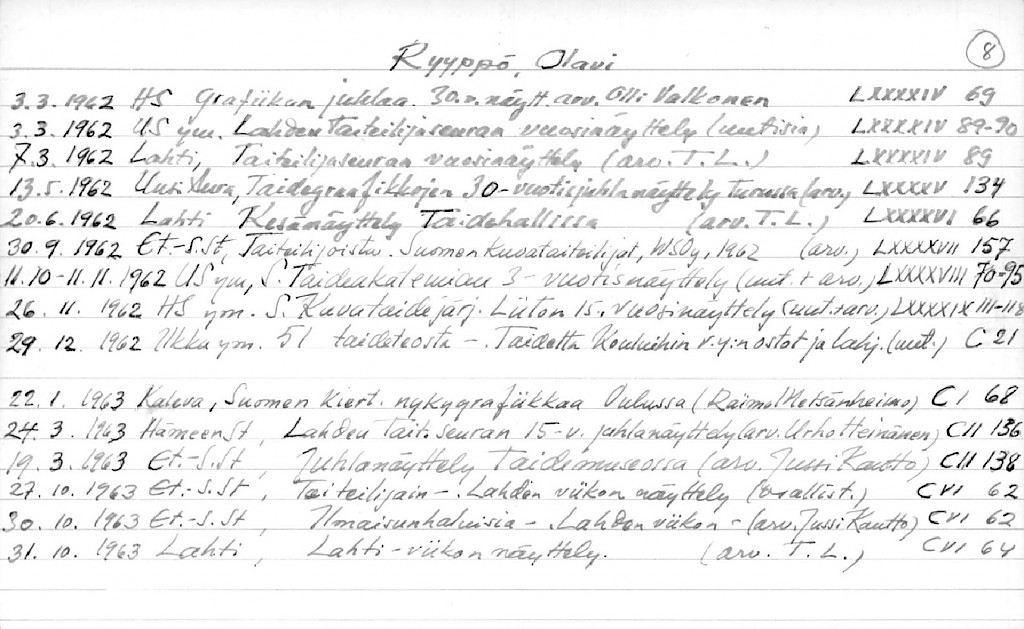 Ryyppö, Olavi
8
3.3.1962 HS Grafiikan juhlaa. 30.v. näytt. arv. Olli Valkonen LXXXXIV 69
3.3.1962 US ym. Lahden Taiteilijaseuran vuosinäyttely (uutisia) LXXXXIV 89-90
7.3.1962 Lahti, Taiteilijaseuran vuosinäyttely (arv. T. L.) LXXXXIV 89
13.5.1962 Uusi Aura, Taidegraafikkojen 30-vuotisjuhlanäyttely Turussa (arv.) LXXXXV 134
20.6.1962 Lahti Kesänäyttely Taidehallissa (arv. T.L.) LXXXXVI 66
30.9.1962 Et.-S.St, Taiteilijoista. Suomen kuvataiteilijat, WSOy, 1962 (arv.) LXXXXVII 157
11.10-11.11.1962 US ym, S. Taideakatemian 3-vuotisnäyttely (uut. + arv.) LXXXXVIII 70-95
26.11.1962 HS ym. S. Kuvataidejärj. Liiton 15. vuosinäyttely (uut.+arv.) LXXXXIX 111-118
29.12.1962 Ukku ym. 51 taideteosta -. Taidetta Kouluihin r.y:n ostot ja lahj. (uut.) C 21
22.1.1963 Kaleva, Suomen kiert. nykygrafiikkaa Oulussa (Raimo Metsänheimo) CI 68
24.3.1963 HämeenSt, Lahden Tait. seuran 15-v. juhlanäyttely (arv. Urho Heinänen) CII 136
19.3.1963 Et.-S.St, Juhlanäyttely Taidemuseossa (arv. Jussi Kautto) CII 138
27.10.1963 Et.-S.St, Taiteilijain -. Lahden viikon näyttely (osallist.) CVI 62
30.10.1963 Et.-S.St, Ilmaisunhaluisia -. Lahden viikon - (arv. Jussi Kautto) CVI 62
31.10.1963 Lahti, Lahti-viikon näyttely. (arv. T. L.) CVI 64